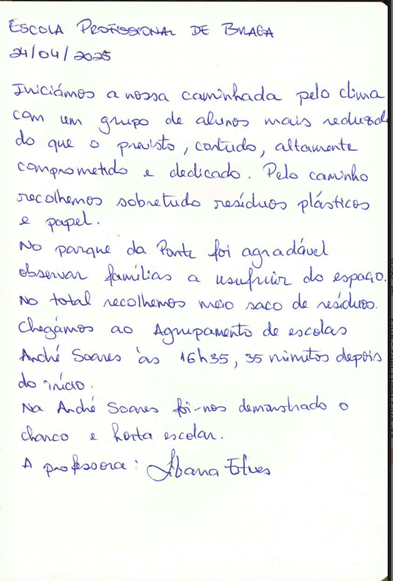 ESCOLA PROFISSIONAL DE BRAGA
24/04/2025
Iniciámos a nossa caminhada pelo clima
com um grupo de alunos mais reduzido
do que o previsto, contudo, altamente
comprometido e dedicado. Pelo caminho
recolhemos sobretudo resíduos plásticos
e papel.
No parque da Ponte foi agradável
observar famílias a usufruir do espaço.
No total recolhemos meio saco de resíduos.
Chegámos ao Agrupamento de escolas
André Soares às 16h35, 35 minutos depois
do início.
Na André Soares foi-nos demonstrado o
charco e horta escolar.
A professora: